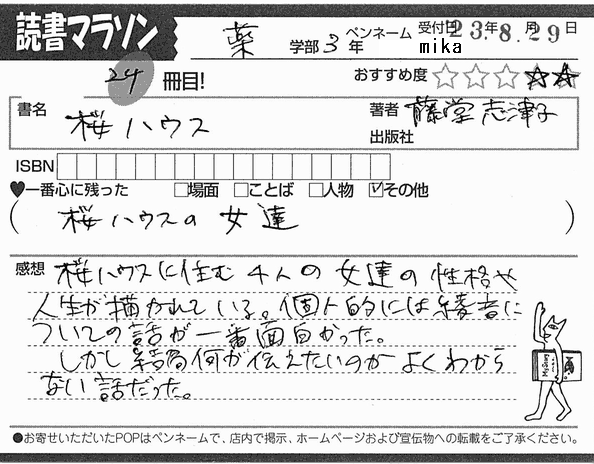 読書マラソン
薬 学部 3 年
ペンネーム mika
受付日 23年8月29日
24 冊目!
おすすめ度 ☆☆☆★★
書名 桜ハウス
著者 藤堂志津子
出版社
ISBN
♥一番心に残った □場面 □ことば □人物 ☑その他
( 桜ハウスの女達 )
感想 桜ハウスに住む4人の女達の性格や
人生が描かれている。個人的には綾音に
ついての話が一番面白かった。
しかし結局何が伝えたいのかよくわから
ない話だった。
●お寄せいただいたPOPはペンネームで、店内で掲示、ホームページおよび宣伝物への転載をご了承ください。